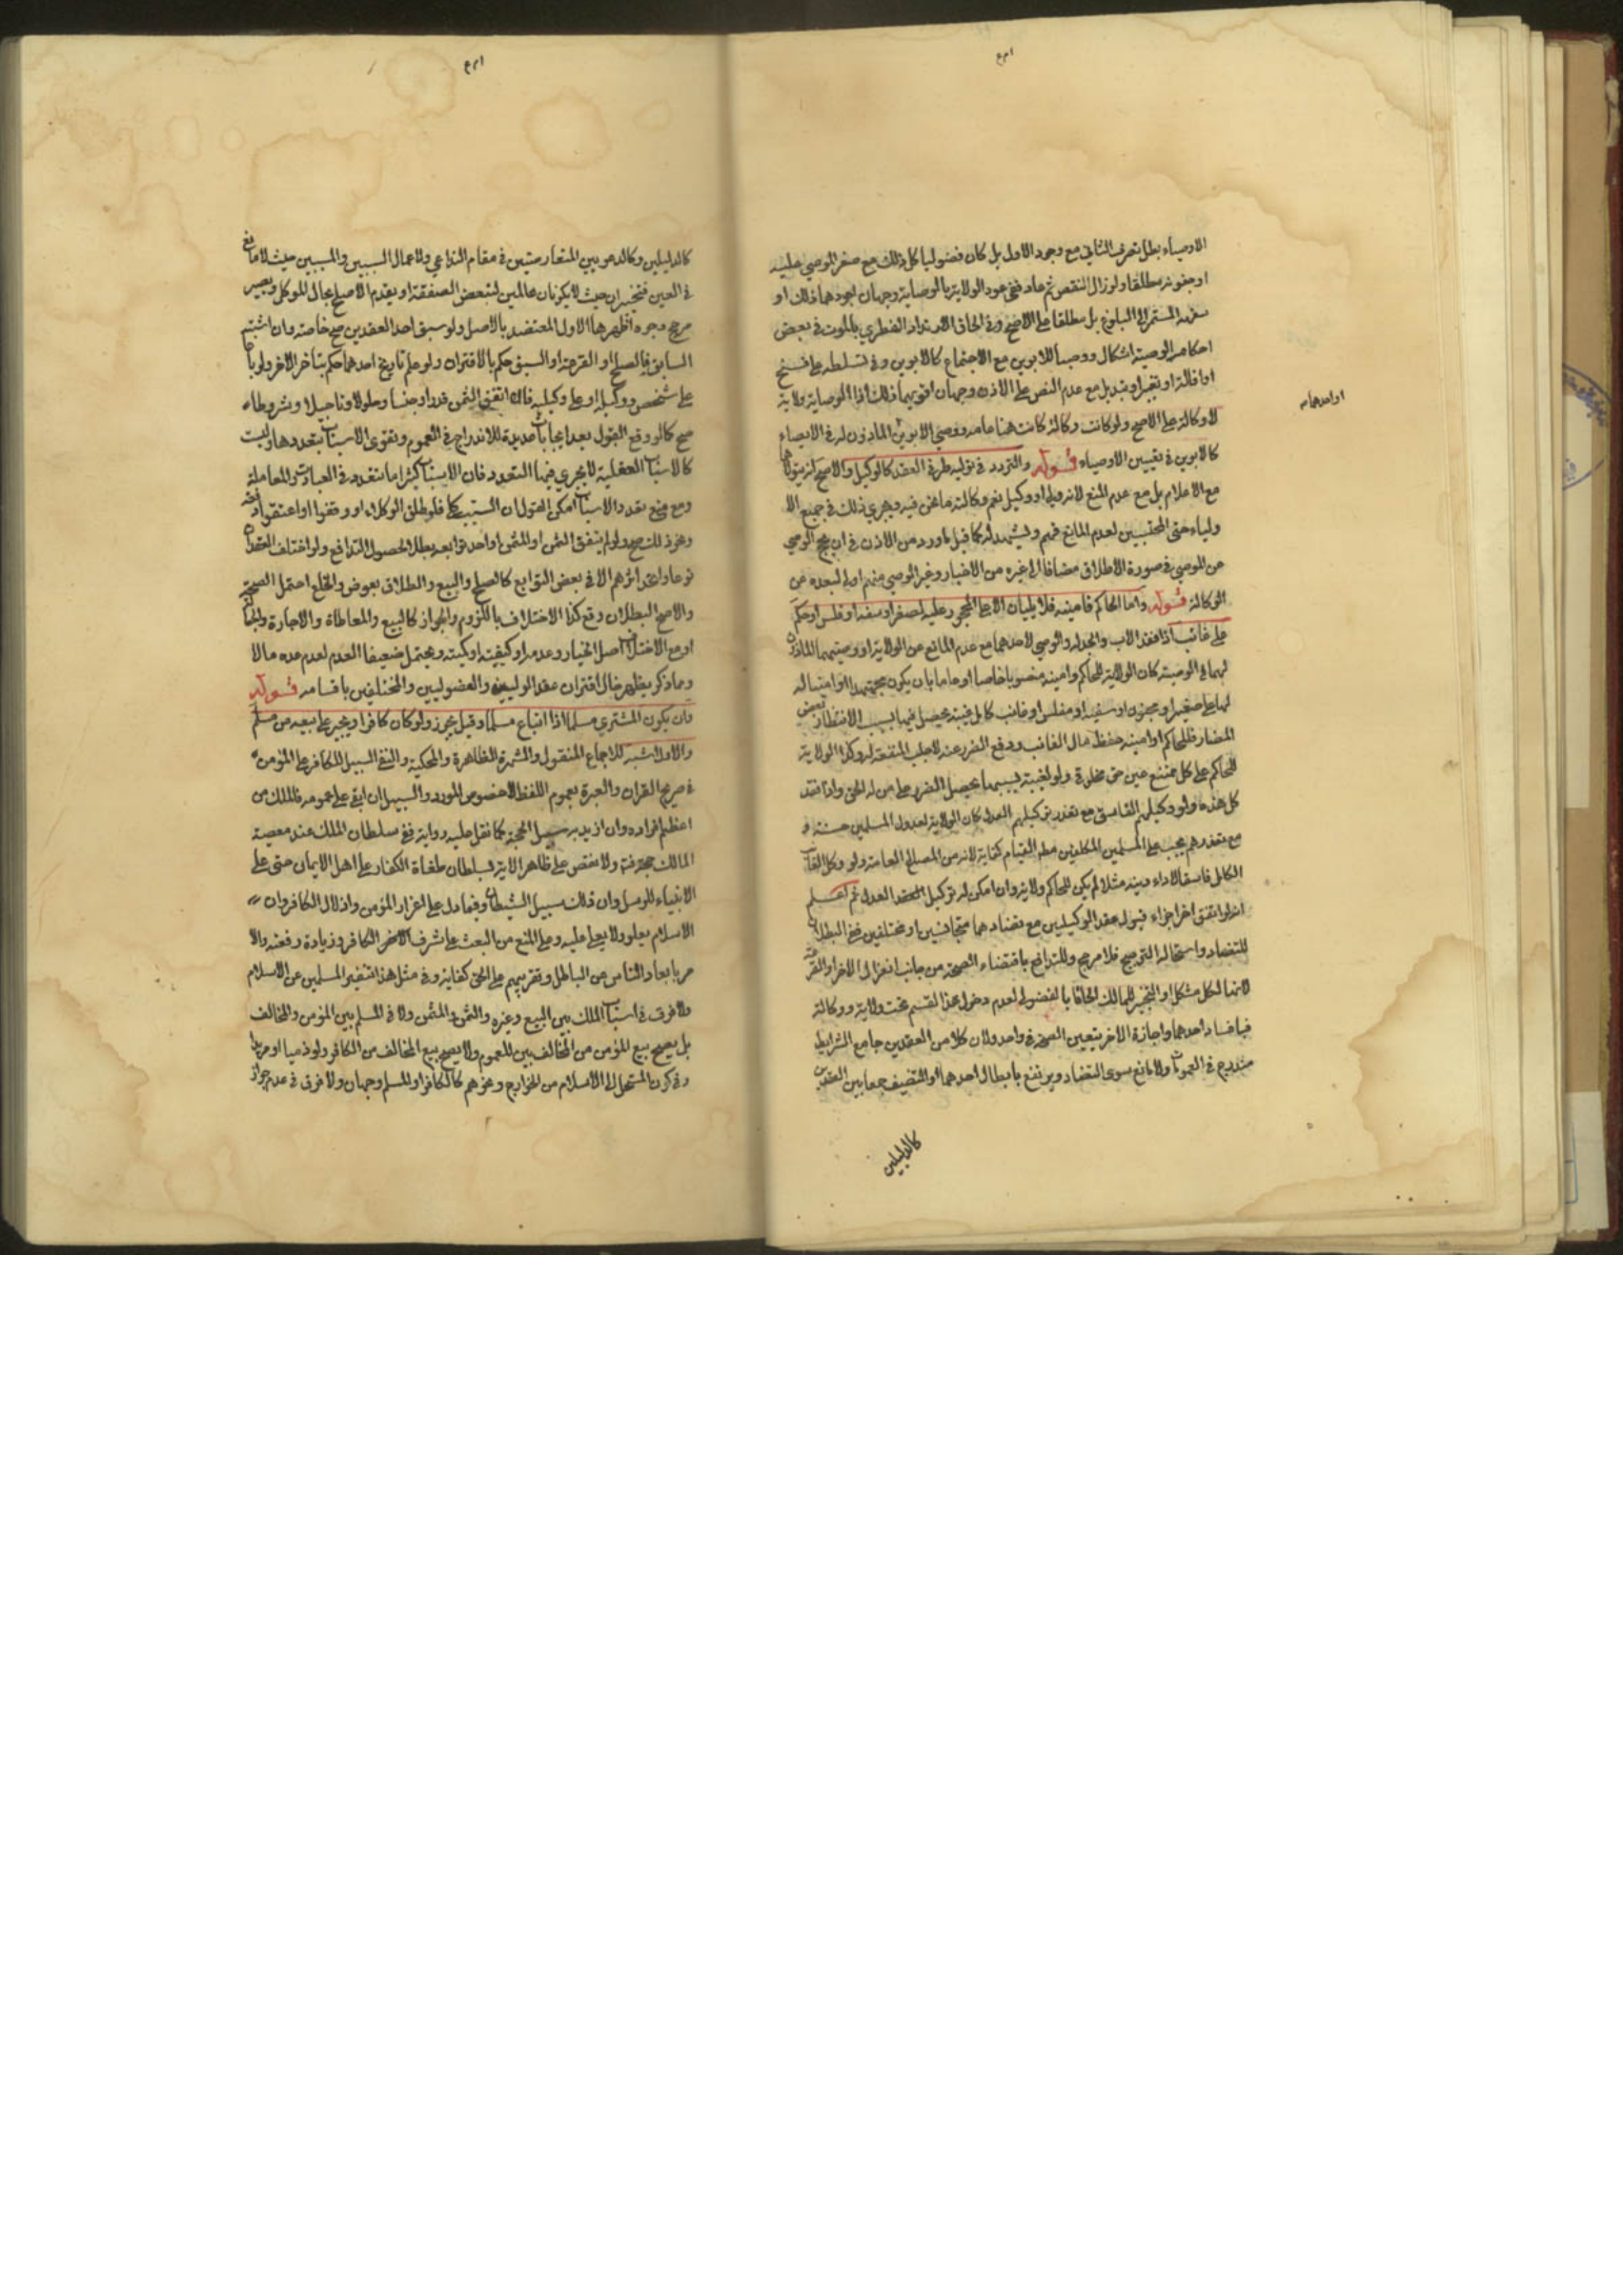 الاوصياء بطل تصرف الثاني مع وجود الاول بل كان فضوليا كل ذلك مع صغر الموصى عليه
او جنونه مطلقا ولو زال النقص ثم عاد ففي عود الولاية بالوصاية وجهان اجودهما ذلك او
سفهه المستمر الى البلوغ بل مطلقا على الاصح وفي الحاق الارتداد الفطري بالموت في بعض
احكامه الوصية اشكال ووصيا للابوين مع الاجتماع كالابوين وفي تسلطه على فسخ
او اقالة او تغيير او تبديل مع عدم النص على الاذن وجهان اقويهما ذلك اذا الوصاية ولاية
لا وكالة على الاصح ولو كانت وكالة كانت هنا عامه ووصي الابوين الماذون له في الايصاء
كالابوين في تعيين الاوصياء قوله والتردد في توليه طرفي العقد كالوكيل والاصح لزيتولاهما
مع الاعلام بل مع عدم المنع لانه ولي او وكيل نعم وكالته ما نحن فيه ويجري ذلك في جميع الا
ولياء حتى المحتسبين لعدم المانع فيهم ويشهد له كما قيل ما ورد من الاذن في ان يحج الوصي
عن الموصي في صورة الاطلاق مضافا الى غيره من الاخبار وغير الوصي منهم اولى لبعده عن
الوكالة قوله واما الحاكم فامينه فلا يليان الا على المحجور عليه لصغر او سفه او فلس او حكم
على غائب اذا فقد الاب والجد له والوصي لاحدهما مع عدم المانع عن الولاية او وصيهما الماذون
لهما في الوصية كان الولاية للحاكم وامينه منصوبا خاصا او عاما بان يكون مجتهدا او امينا له
لهما على صغير او مجنون او سفيه او مفلس او غائب كامل غيبة يحصل فيها بسبب الانتظار بعض
المضار فللحاكم او امينه حفظ مال الغائب ودفع الضرر عنه لا جلب المنفعة له وكذا الولاية
للحاكم على كل ممتنع عن حق مخلوق ولو لغيبة بسببها يحصل الضرر على من له الحق واذا فقد
كل هذه ولو وكيلهم الفاسق مع تعذر توكيلهم العدل كان الولاية لعدول المسلمين حسبة و
مع تعذرهم يجب على المسلمين المكلفين مطه القيام كفاية لانه من المصالح العامة ولو وكل الغائب
الكامل فاسقا لاداء دينه مثلا لم يكن للحاكم ولاية وان امكن له توكيل العقد العدل ثم اعلم
انه لو اتفق اخر اجزاء قبول عقد الوكيلين مع تضادهما متجانسين او مختلفين ففي البطلان
للتضاد واستحالة الترجيح فلا مرجح وللتدافع باقتضاء الصحة من جانب انعزال الاخر او القرعة
لانها لكل مشكل او التخيير للمالك الحاقا بالفضولي لعدم دخول هذا القسم تحت ولاية ووكالة
فبافساد احدهما واجازة الاخر يتعين الصحة في واحد ولان كلا من العقدين جامع الشرايط
مندرج في العمومات ولا مانع سوى التضاد ويرتفع بابطال احدهما او التنصيف جمعا بين العقدين
كالدليلين
او احدهما
كالدليلين وكالدعويين المتعارضتين في مقام التداعي ولاعمال السببين والمسببين حيث لا مانع
في العين فتخيران حيث لا يكونان عالمين لتبعض الصفقة او يقدم الاصلح بحال الموكل وبصير
مرجح وجوه اظهرها الاول المعتضد بالاصل ولو سبق احد العقدين صح خاصة وان اشتبه
السابق فالصلح او القرعة او السبق حكم بالاقتران ولو علم تاريخ احدهما حكم بتاخر الاخر ولو باع
على شخص ووكيله او على وكيليه فان اتفق الثمن قدرا وجنسا وحلولا وتاجيلا وشروطا
صح كما لو وقع القبول بعد ايجابات عديدة للاندراج في العموم وتقوى الاسباب بتعددها وليست
كالاسباب العقلية لا يجري فيها التعدد فان الاسباب كثيرا ما تتعدد في العبادات والمعاملة
ومع منع تعدد الاسباب امكن القول بان السبب كل فلو طلق الوكلاء او وقفوا او اعتقوا دفعة
ونحو ذلك صح ولو لم يتفق الثمن او المثمن او احد توابعه بطلا لحصول التدافع ولو اختلف العقدان
نوعا واتحد اثرهم الا في بعض التوابع كالصلح والبيع والطلاق بعوض والخلع احتمل الصحة
والاصح البطلان وقع كذا الاختلاف باللزوم والجواز كالبيع والمعاطاة والاجارة والجعالة
او مع الاختلاف اصل الخيار وعدمه او كيفيته او كميته ويحتمل ضعيفا العدم لعدم عده مالا
ومما ذكر يظهر حال اقتران عقد الوليين والفضوليين والمختلفين باقسامه قوله
وان يكون المشتري مسلما اذا ابتاع مسلما وقيل يجوز ولو كان كافرا ويجبر على بيعه من مسلم
والاول اشبه للاجماع المنقول والشهرة الظاهرة والمحكية والنفي السبيل للكافر على المؤمن
في صريح القران والعبرة بعموم اللفظ لا خصوص المورد والسبيل ان ابقي على عمومه فالملك من
اعظم افراده وان اريد به سبيل الحجة كما نقل عليه رواية ففي سلطان الملك عند معصية
المالك حجة منه ولا نقض على ظاهر الاية بسلطان طغاة الكفار على اهل الايمان حتى على
الانبياء للرسل وان ذلك سبيل الشيطان وفيما دل على اعزاز المؤمن واذلال الكافر وان
الاسلام يعلو ولا يعلى عليه وعلى المنع من البعث على شرف الاخر الكافر وزيادة رفعته والا
مر بابعاد الناس عن الباطل وتقريبهم على الحق كفاية وفي مثل هذا تنفير المسلمين عن الاسلام
ولا فرق في اسباب الملك بين البيع وغيره والثمن والمثمن ولا في المسلم بين المؤمن والمخالف
بل يصح بيع المؤمن من المخالف بين للعموم ولا يصح بيع المخالف من الكافر ولو ذميا او مرتدا
وفي كون المنتحل الى الاسلام من الخوارج ونحوهم كالكافر او المسلم وجهان ولا فرق في عدم جواز